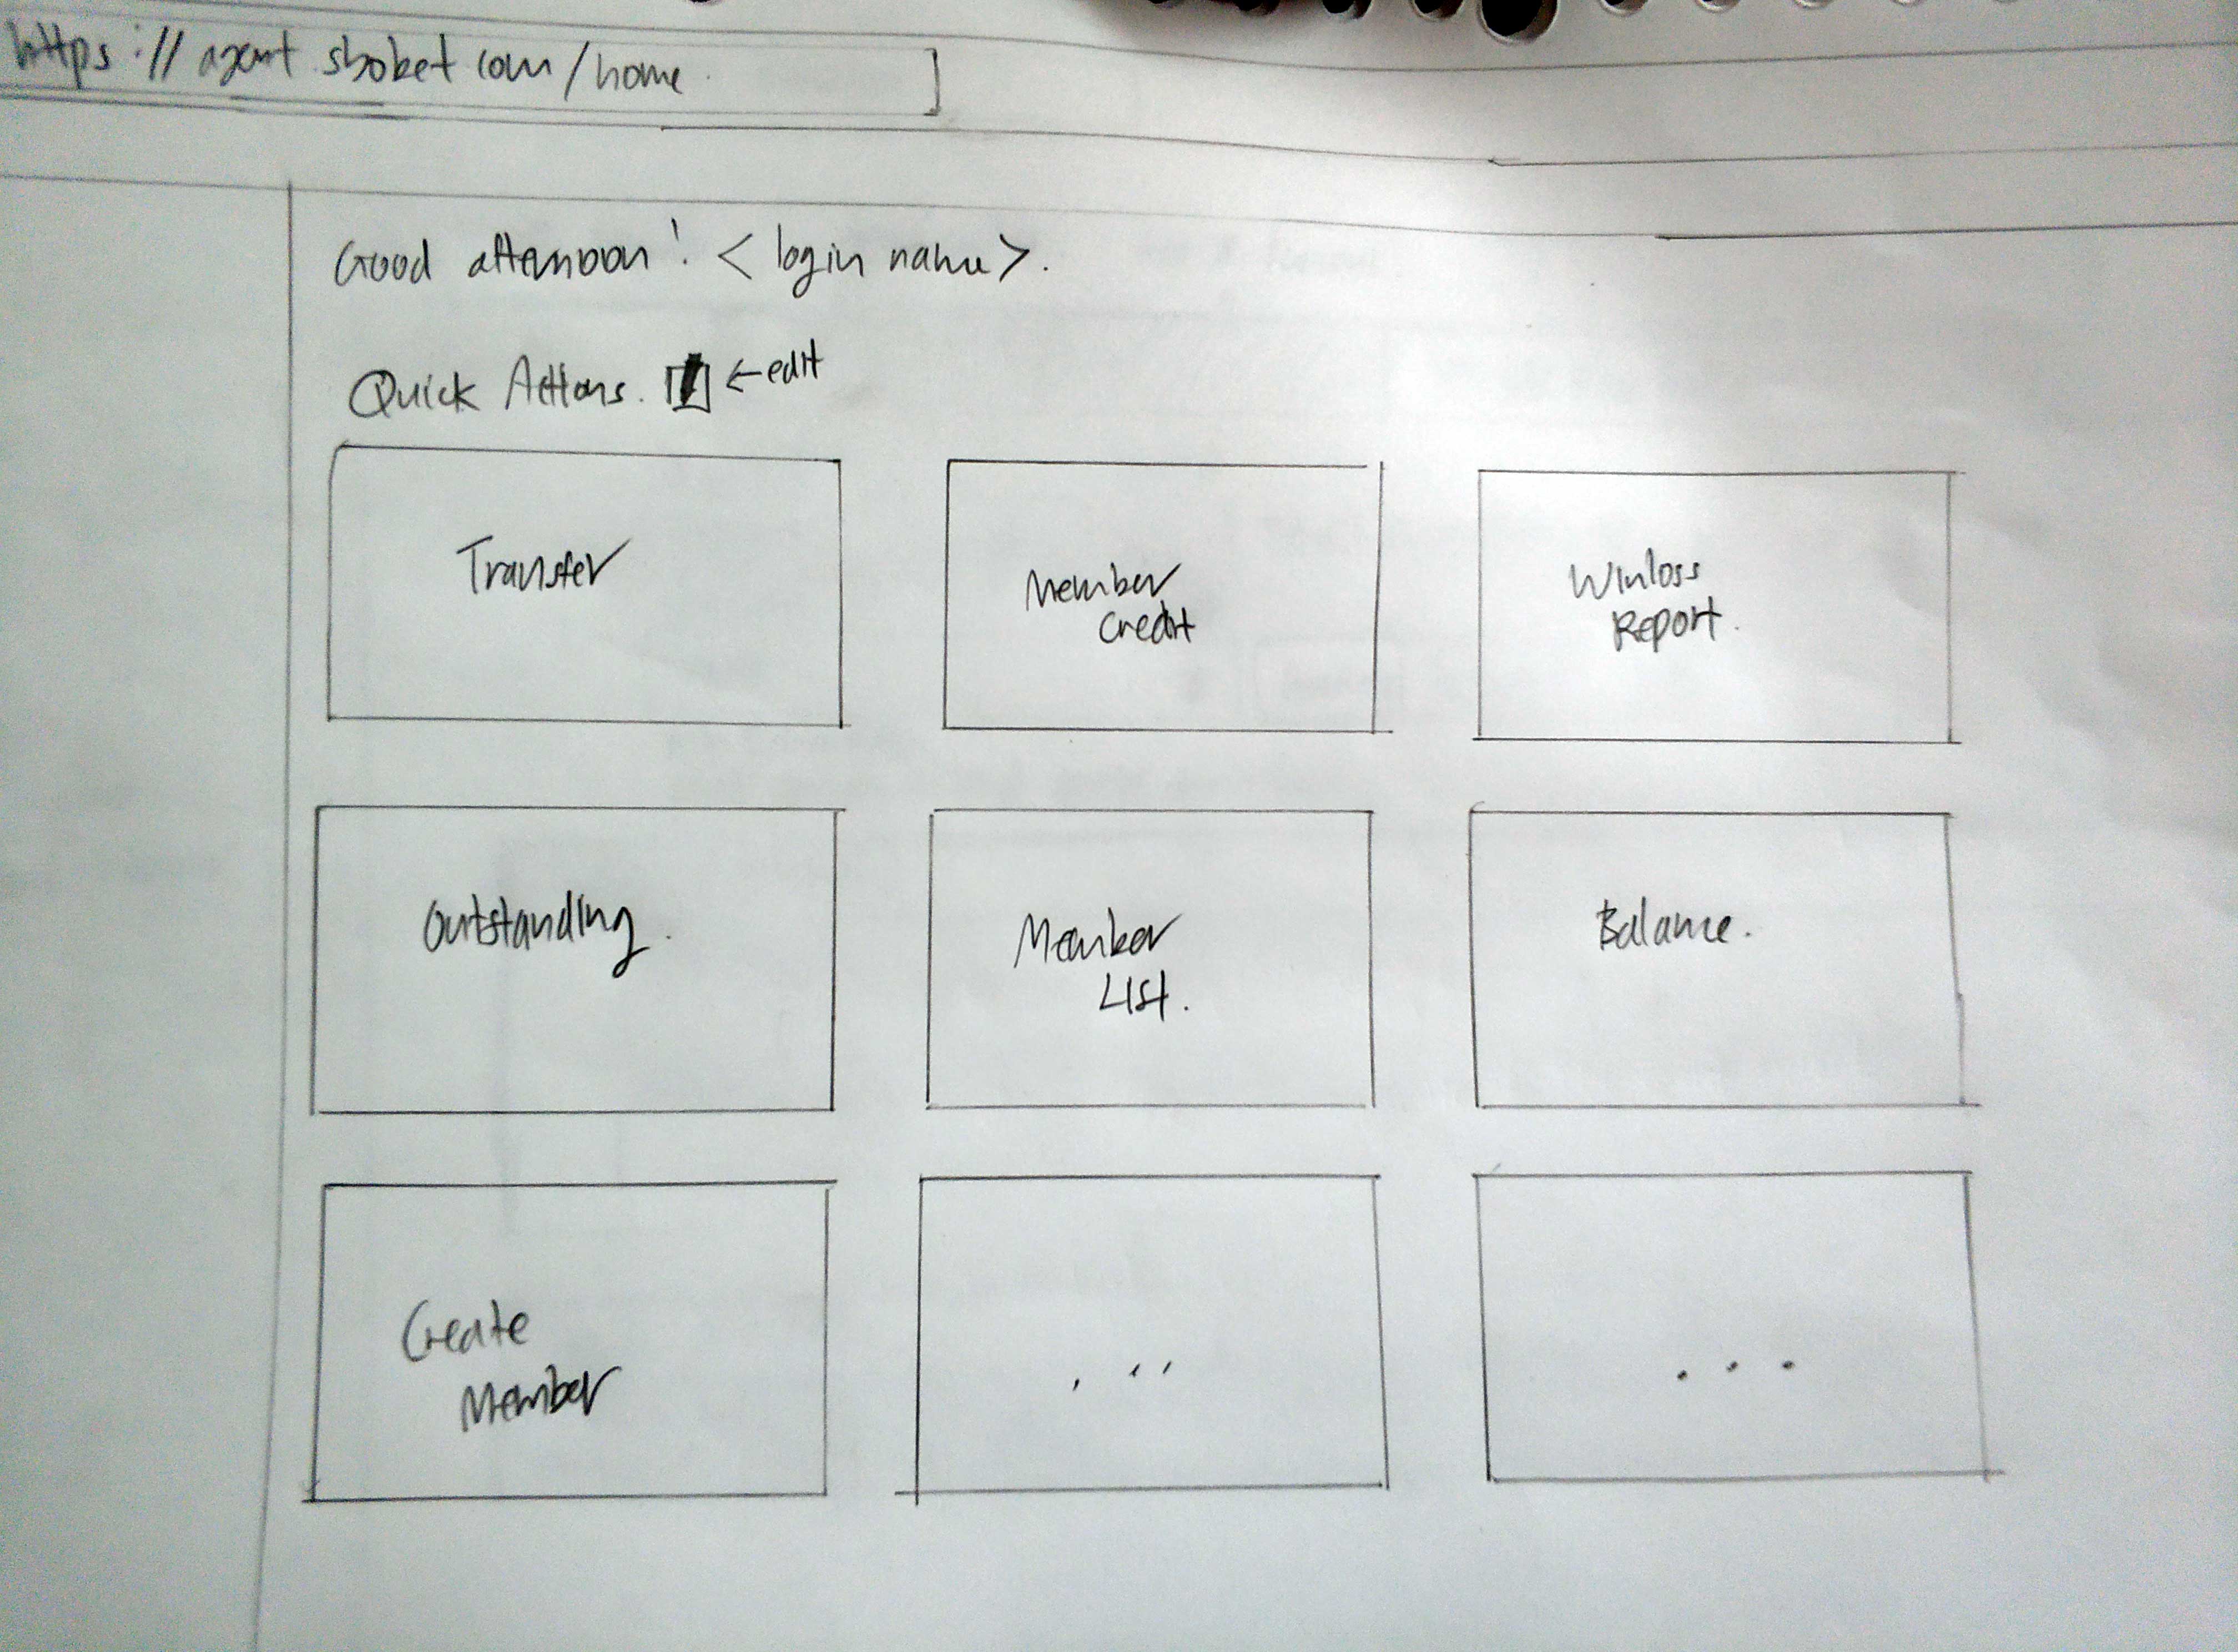 https://agent.sbobet.com/home
Good afternoon! <login name>.
Quick Actions. ←edit
Transfer
Member
Credit
Winloss
Report.
Outstanding.
Member
List.
Balance.
Create
Member
...
...